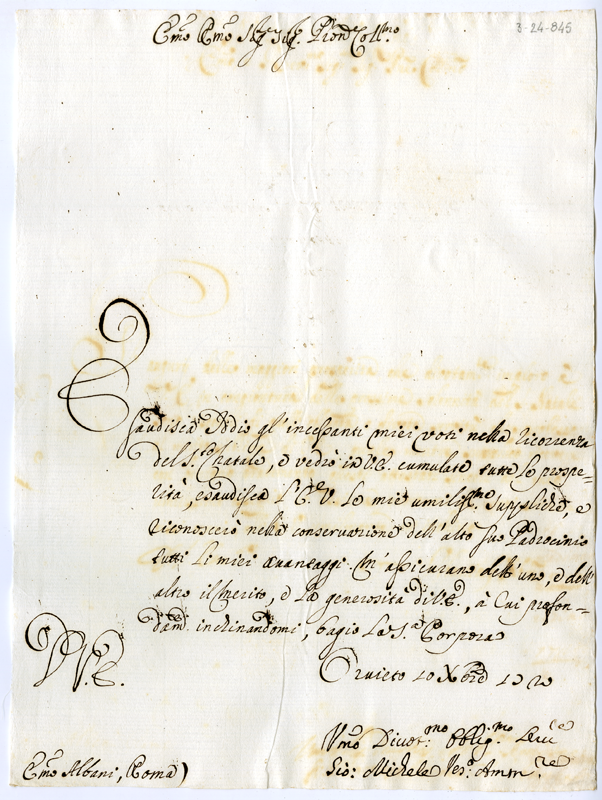 3-24-845
Em͞o Em͞o Sig. Sig. Pron Coll.mo
Esaudisca Idio gl'incessanti miei voti nella ricorrenza
del S.to Natale, e vedrò in V.E. cumulate tutte le prospe=
rità, esaudisca l'E. V. le mie umiliss.me suppliche, e
riconoscerò nella conservazione dell'alto suo Padrocinio
tutti li miei avantaggi. M'assicurano dell'uno, e dell'
altro il merito, e la generosità di V.E., à cui profon=
dam. inchinandomi, bagio la S.a Porpora
D V.E.
Orvieto 20 Xbre
Vmo Divot.mo Obblig.mo Ser.re
Gio: Michele Ves.o
Em͞o Albani, (Roma)